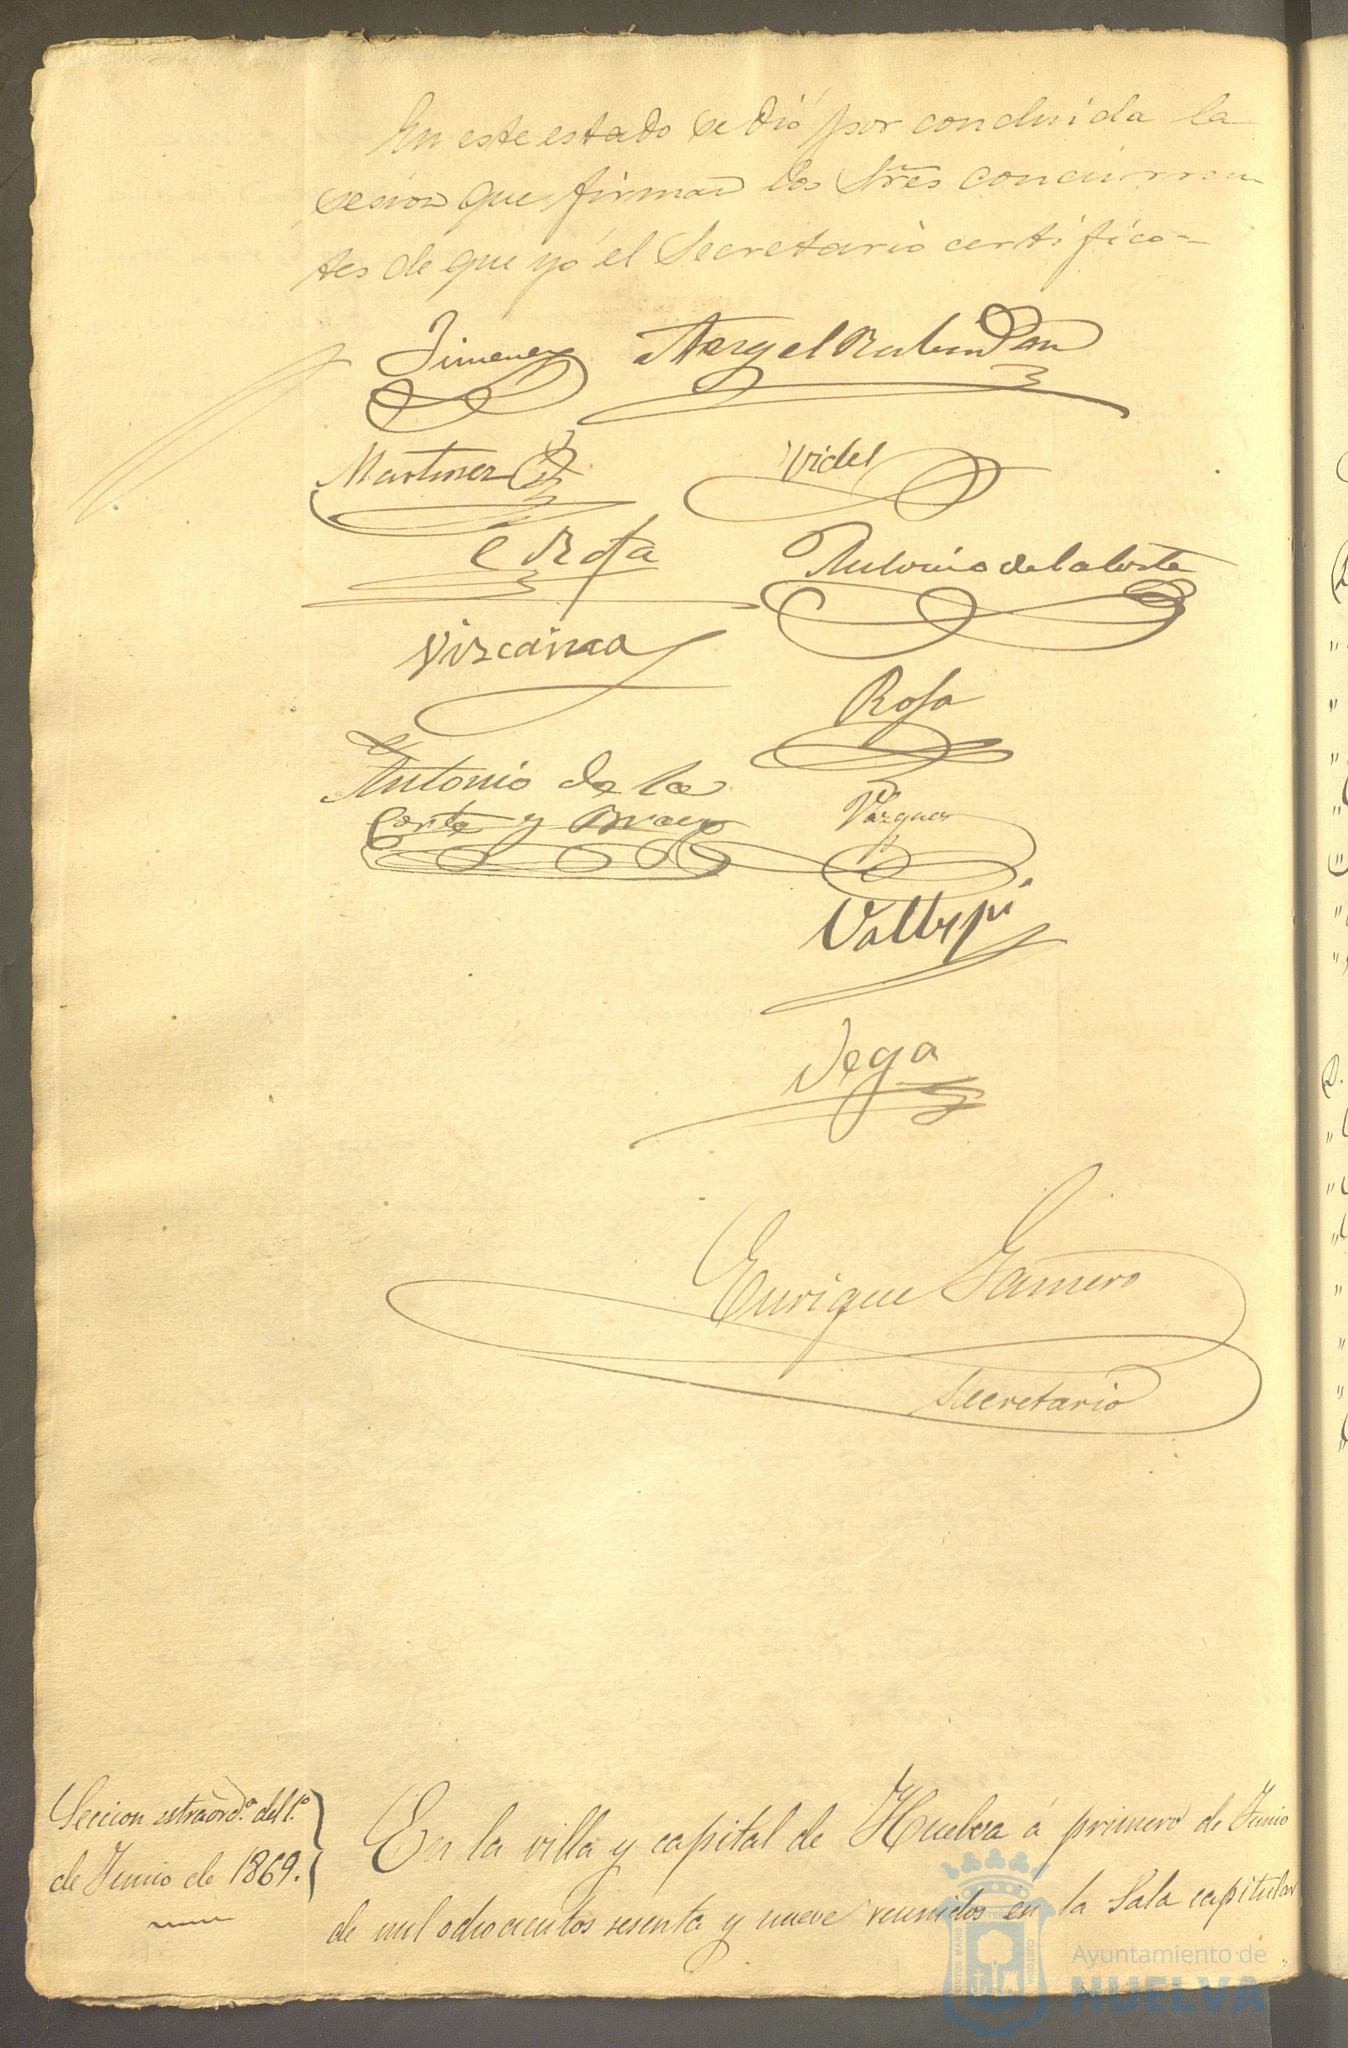 En este estado se dió por concluida la
sesion que firman los Sres concurren
tes de que yó el Secretario certifico =
Jimenez
Angel Rubin
Martinez
Vidal
C Rota
Antonio de la Corte
Vizcaino
Rofa
Antonio de la
Corte y Bravo
Vazquez
Vega
Enrique Gamero
Secretario
Seccion estraord.ª del 1.º
de Junio de 1869.
En la villa y capital de Huelva á primero de Junio
de mil ochocientos sesenta y nueve reunidos en la Sala capitular
Ayuntamiento de
HUELVA